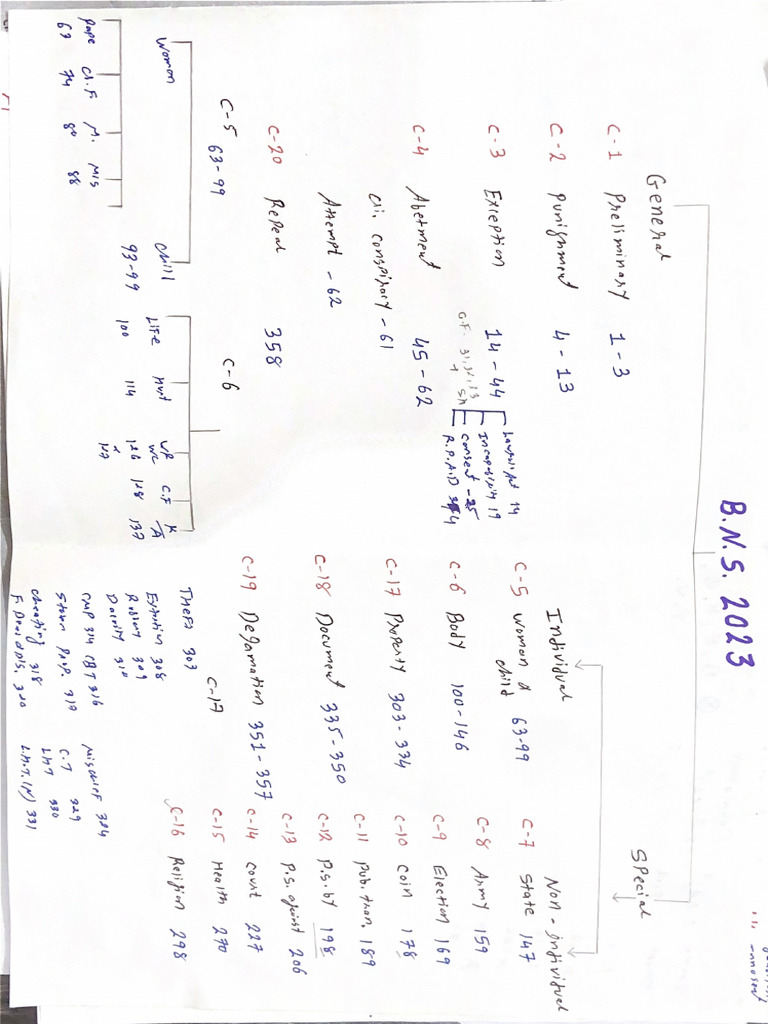 B.N.S. 2023
General
C-1 Preliminary 1-3
C-2 Punishment 4-13
C-3 Exception 14-44
Incapability 19
Consent - 25
C-4 Abetment 45-62
Cri. conspiracy - 61
Attempt - 62
C-20 Repeal 358
Special
Individual
C-5 Woman & child 63-99
C-6 Body 100-146
C-17 Property 303-334
C-18 Document 335-350
C-19 Defamation 351-357
Non-individual
C-7 State 147
C-8 Army 159
C-9 Election 169
C-10 Coin 178
C-11 Pub. tran. 189
C-12 P.S. by 198
C-13 P.S. against 206
C-14 Court 227
C-15 Health 270
C-16 Religion 298
C-5 63-99
Woman
Rape 63
Cri.F. 74
M. 80
Mis 88
Child 93-99
C-6
Life 100
Hurt 114
WR WC 126 127
C.F 128
K A 137
C-17
Theft 303
Extortion 308
Robbery 309
Dacoity 310
CMP 314 CBT 316
Stolen Prop. 317
Cheating 318
F. Deed & Dis. 320
Mischief 324
C.T 329
LHT 330
L.H.T. (N) 331